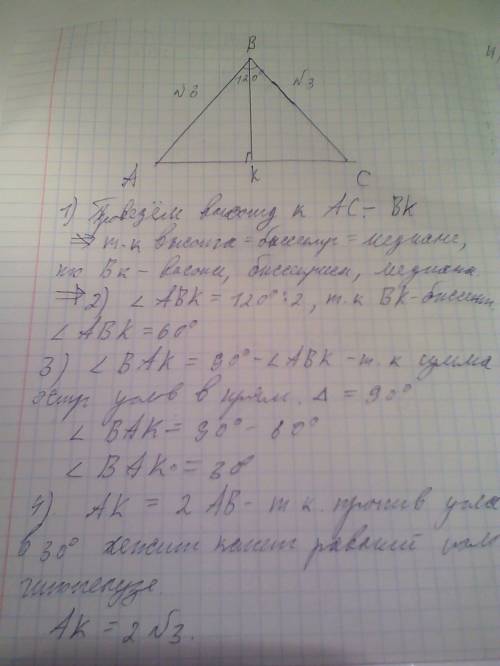 B
√3 120° √3
A K C
1) Проведём высоту к AC - BK
⇒ т.к высота = биссектр = медиане,
BK - высота, биссектриса, медиана
⇒ 2) ∠ABK = 120° : 2, т.к BK - биссектр.
∠ABK = 60°
3) ∠BAK = 90° - ∠ABK - т.к сумма
остр углов в прям. Δ = 90°
∠BAK = 90° - 60°
∠BAK = 30°
4) AK = 2 AB - т к. против угла
в 30° лежит катет равный
гипотенузе.
AK = 2√3.